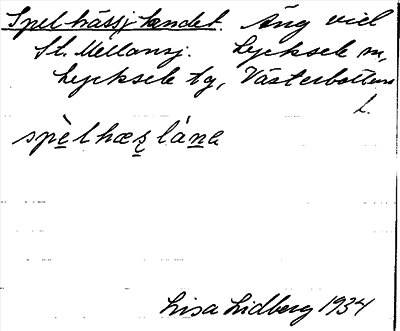 Spelhässjlandet. Äng vid
St. Mellansj. Lycksele sn,
Lycksele tg, Västerbottens
L.
spèlhæʂlánə
Lisa Lidberg 1934